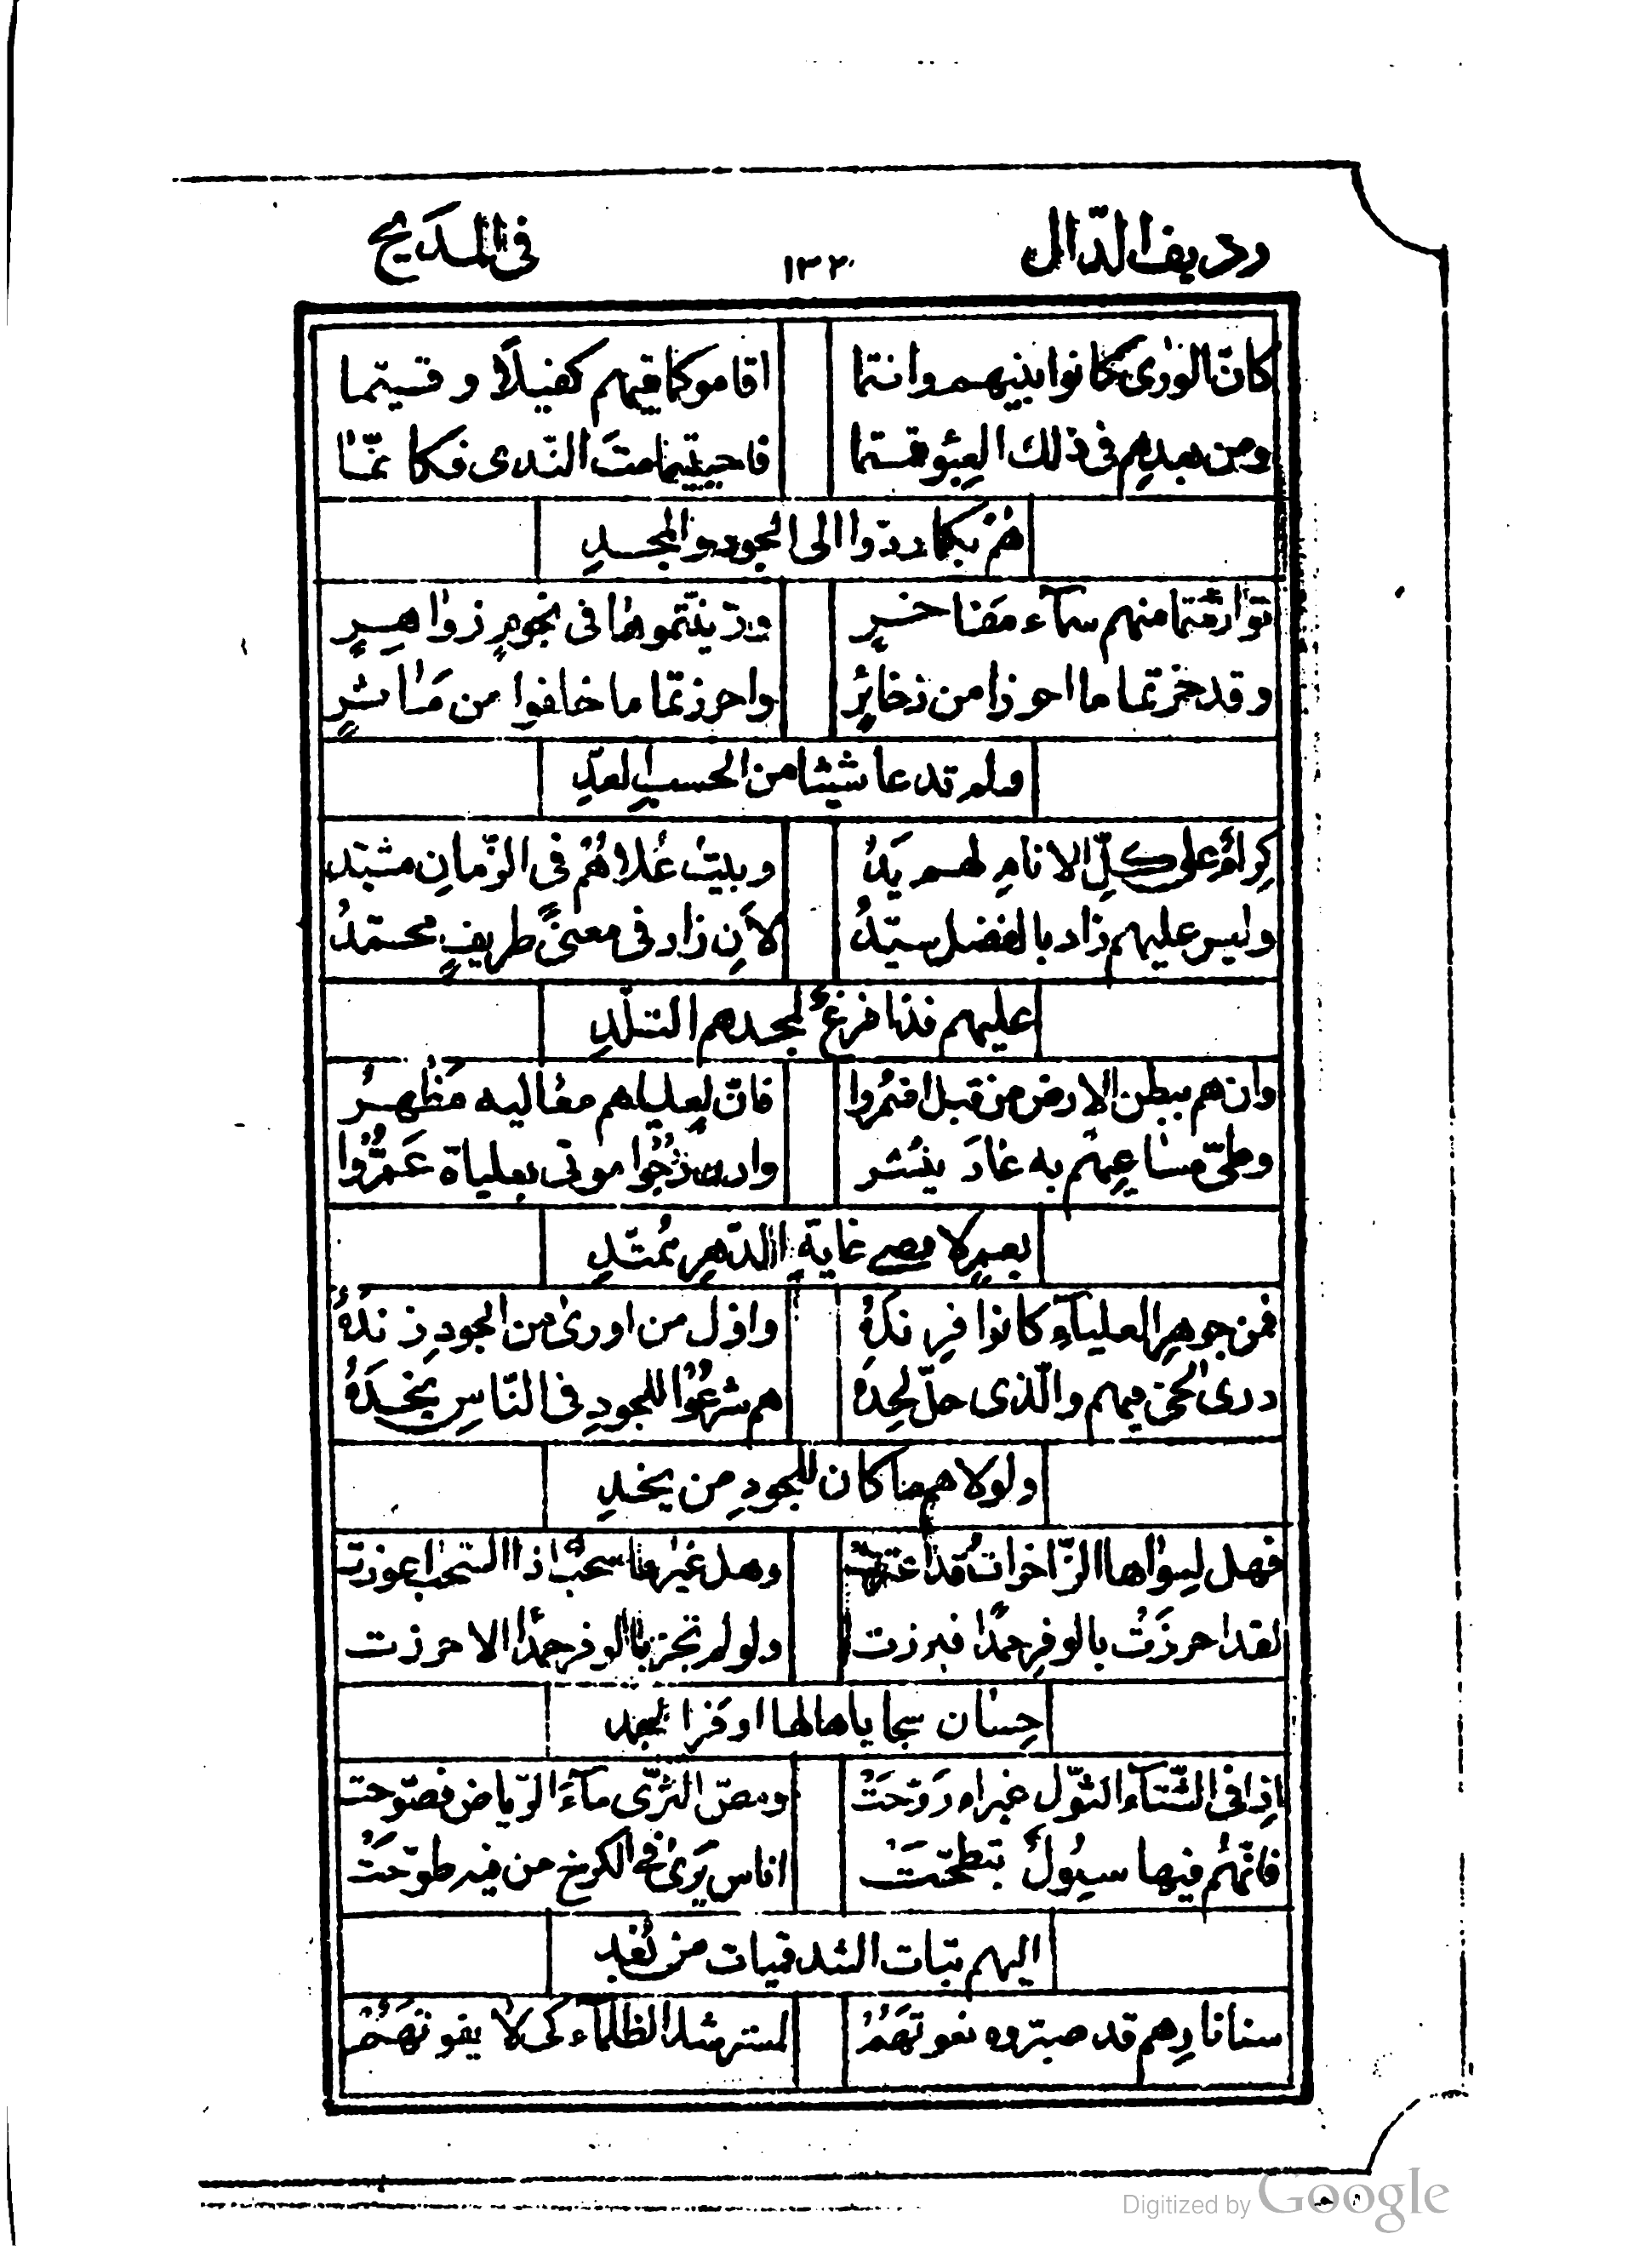 رديف الدّال ١٣٢ فى المديح
كانّ الورى كانوا بنيهم وانتما اقاموكما فيهم كفيلاً وقيتما
ومن بعدهم فى ذلك العبئو قمتما فاحييتما ميت النّدى فكانّما
هُمُ بكما ردّوا الى الجود والمجدِ
توارثتما منهم سماء مفاخرٍ وزينتموها فى نجومٍ زواهرٍ
وقد حزتما ما احرزوا من ذخائرٍ واحرزتما ما خلفوا من مآثرٍ
ولم تدعا شيئا من الحسبِ العدِّ
كِرامٌ على كلِّ الانامِ لهم يَدُ وبيتُ عُلاهُمْ فى الزّمانِ مشيّد
وليس عليهم زاد بالفضل سيّدُ لاَنِ زاد فى معنىً طريفٍ محمّدُ
عليهم فذا فرعٌ لمجدهم التلدِ
وان هم ببطن الارض من قبل اقبُروا فانّ لعلياهم معاليه مَظْهرُ
وطىّ مساعيهم به عادَ ينشر موتى بعلياة عَمّرُوا
بعمرٍ لا غايةِ الدّهرِ مُمتدِّ
فمن جوهرِ العلياءِ كانوا فِرِندَهُ واوّل من اورى من الجودِ زندَهُ
درى الحىّ فيهم والّذى حلّ لحدَهُ هم شرعُوا للجودِ فى النّاسِ نجدَهُ
ولولا هم ما كان للجودِ من نجدِ
فهل لسواها الزّاخرات قد وهل غيرها سحبٌ اذا السّحب اعوزت
لقد احرزَتْ بالوفرِ حمدًا فبرزت ولو لم تحز بالوفر حمدًا لاحرزت
حِسان سجاياها لها اوفرَ الحمد
اذا فى الشّتآء الشّول غبراء روّحَتْ ومصّ الثرّى مآءَ الرّياض فصوّحت
فانّهُم فيها سيُولٌ تبطّحتْ اناس يَرىٰ فى الكرخ من فيد طوّحَتْ
اليهم بنات الشدقميات من بُعدِ
سنا نارِهم قد صيّروه نعوتَهُمُ لمسترشد الظلمآء كى لا يفوتهُمُ